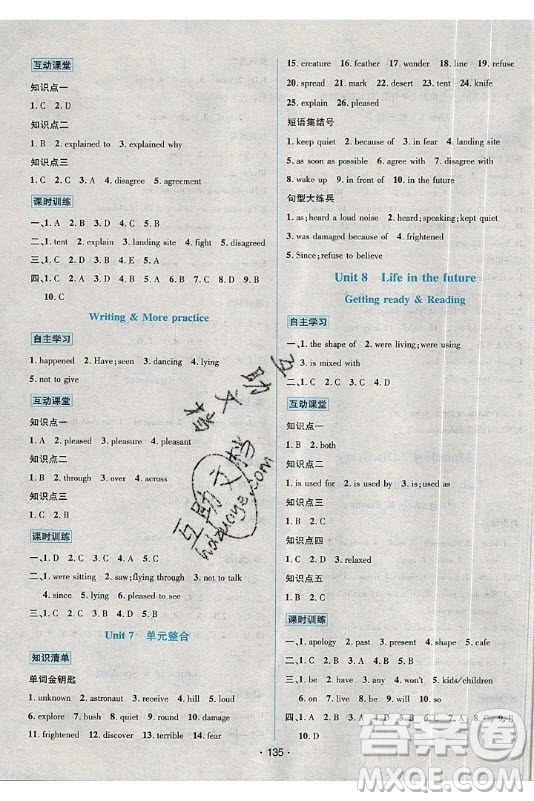 互动课堂
知识点一
1. C  2. D
知识点二
1. B  2. explained to  3. explained why
知识点三
1. C  2. C  3. A  4. disagree  5. agreement
课时训练
一、1. A  2. D  3. C  4. A  5. B
二、1. tent  2. explain  3. landing site  4. fight  5. disagreed
三、1. D  2. C  3. A  4. C  5. B
四、1. C  2. D  3. C  4. D  5. A  6. B  7. A  8. D  9. B
10. C
Writing & More practice
自主学习
1. happened  2. Have; seen  3. dancing  4. lying
5. not to give
互动课堂
知识点一
1. A  2. pleased  3. pleasure  4. pleasant
知识点二
1. B  2. through  3. over  4. across
知识点三
1. A  2. B
课时训练
一、1. D  2. C  3. C  4. A  5. B
二、1. were sitting  2. saw; flying through  3. not to talk
4. since  5. lying; off
三、1. C  2. B  3. D  4. C  5. B
Unit 7  单元整合
知识清单
单词金钥匙
1. unknown  2. astronaut  3. receive  4. hill  5. loud
6. explore  7. bush  8. quiet  9. follow  10. damage
11. frightened  12. discover  13. terrible  14. fear
15. creature  16. feather  17. wonder  18. line  19. refuse
20. spread  21. mark  22. desert  23. tent  24. knife
25. explain  26. pleased
短语集结号
1. keep quiet  2. because of  3. in fear  4. landing site
5. as soon as possible  6. see off  7. agree with
8. wake up  9. in front of  10. in the future
句型大练兵
1. as; heard a loud noise  2. heard; speaking; kept quiet
3. was damaged because of  4. frightened
5. As; refuse to believe
Unit 8  Life in the future
Getting ready & Reading
自主学习
1. the shape of  2. were living; were using
3. is mixed with
互动课堂
知识点一
1. B  2. both
知识点二
1. is used for  2. is used as  3. C
知识点三
1. B  2. D
知识点四
1. D  2. A  3. relaxed
知识点五
1. D  2. B
课时训练
一、1. apology  2. past  3. mirror  4. shape  5. cafe
二、1. C  2. B  3. A  4. C  5. B
三、1. there  2. us  3. better  4. with  5. kids/children
6. find  7. be  8. on  9. will  10. so
四、1. D  2. C  3. B  4. A  5. D  6. B  7. A  8. C  9. B
10. D
· 135 ·
互助文档
互助文档
hdzuoye.com
答案圈
MXQE.COM